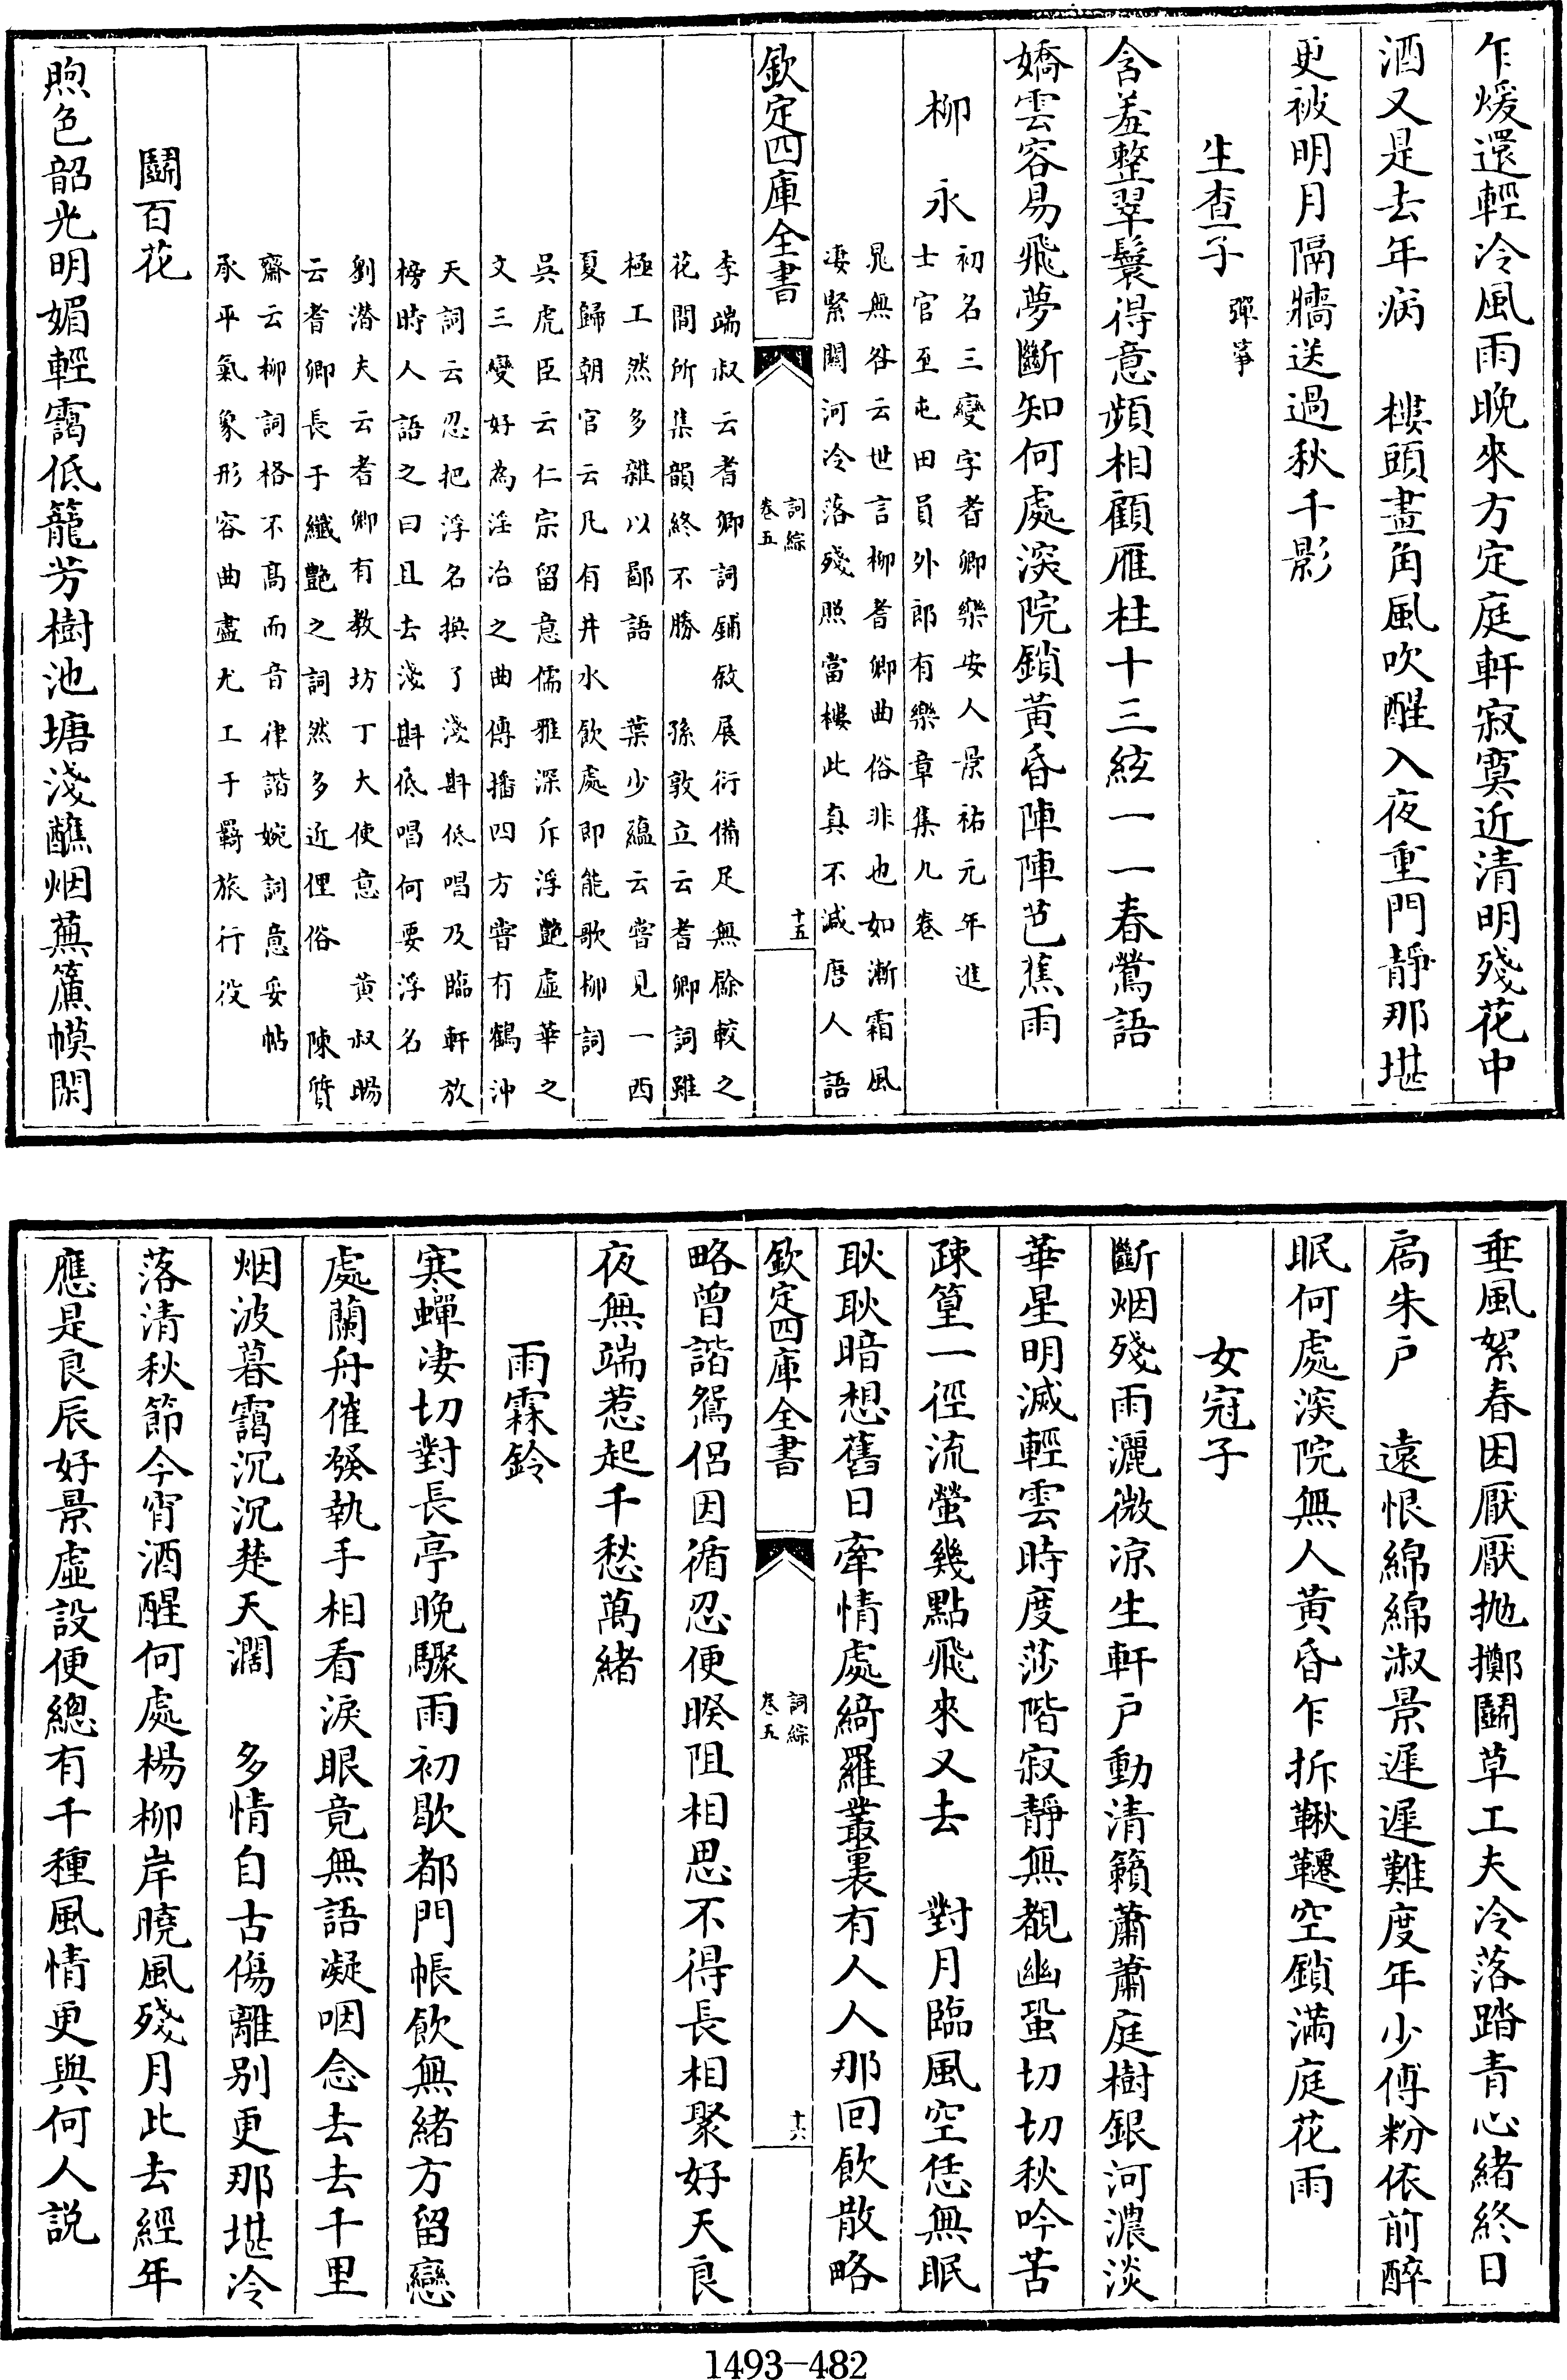 乍煖還輕冷風雨晚來方定庭軒寂寞近清明殘花中
酒又是去年病　樓頭畫角風吹醒入夜重門靜那堪
更被明月隔牆送過秋千影
生查子　彈箏
含羞整翠鬟得意頻相顧雁柱十三絃一一春鶯語
嬌雲容易飛夢斷知何處深院鎖黃昏陣陣芭蕉雨
柳　永
初名三變字耆卿樂安人景祐元年進
士官至屯田員外郎有樂章集九卷
晁無咎云世言柳耆卿曲俗非也如漸霜風
凄緊關河冷落殘照當樓此真不減唐人語
欽定四庫全書
詞綜
卷五
十五
李端叔云耆卿詞鋪敘展衍備足無餘較之
花間所集韻終不勝　孫敦立云耆卿詞雖
極工然多雜以鄙語　葉少蘊云嘗見一西
夏歸朝官云凡有井水飲處即能歌柳詞
吳虎臣云仁宗留意儒雅深斥浮艷虛華之
文三變好為淫冶之曲傳播四方嘗有鶴沖
天詞云忍把浮名換了淺斟低唱及臨軒放
榜時人語之曰且去淺斟低唱何要浮名
劉潛夫云耆卿有教坊丁大使意　黃叔暘
云耆卿長于纖艷之詞然多近俚俗　陳質
齋云柳詞格不高而音律諧婉詞意妥帖
承平氣象形容曲盡尤工于羇旅行役
鬬百花
煦色韶光明媚輕靄低籠芳樹池塘淺蘸烟蕪簾幙閑
垂風絮春困厭厭拋擲鬬草工夫冷落踏青心緒終日
扃朱戶　遠恨綿綿淑景遲遲難度年少傅粉依前醉
眠何處深院無人黃昏乍拆鞦韆空鎖滿庭花雨
女冠子
斷烟殘雨灑微凉生軒戶動清籟蕭蕭庭樹銀河濃淡
華星明滅輕雲時度莎階寂靜無覩幽蛩切切秋吟苦
疎篁一徑流螢幾點飛來又去　對月臨風空恁無眠
耿耿暗想舊日牽情處綺羅叢裏有人人那回飲散略
欽定四庫全書
詞綜
卷五
十六
略曾諧鴛侶因循忍便睽阻相思不得長相聚好天良
夜無端惹起千愁萬緒
雨霖鈴
寒蟬凄切對長亭晚驟雨初歇都門帳飲無緒方留戀
處蘭舟催發執手相看淚眼竟無語凝咽念去去千里
烟波暮靄沉沉楚天濶　多情自古傷離別更那堪冷
落清秋節今宵酒醒何處楊柳岸曉風殘月此去經年
應是良辰好景虛設便總有千種風情更與何人說
1493-482